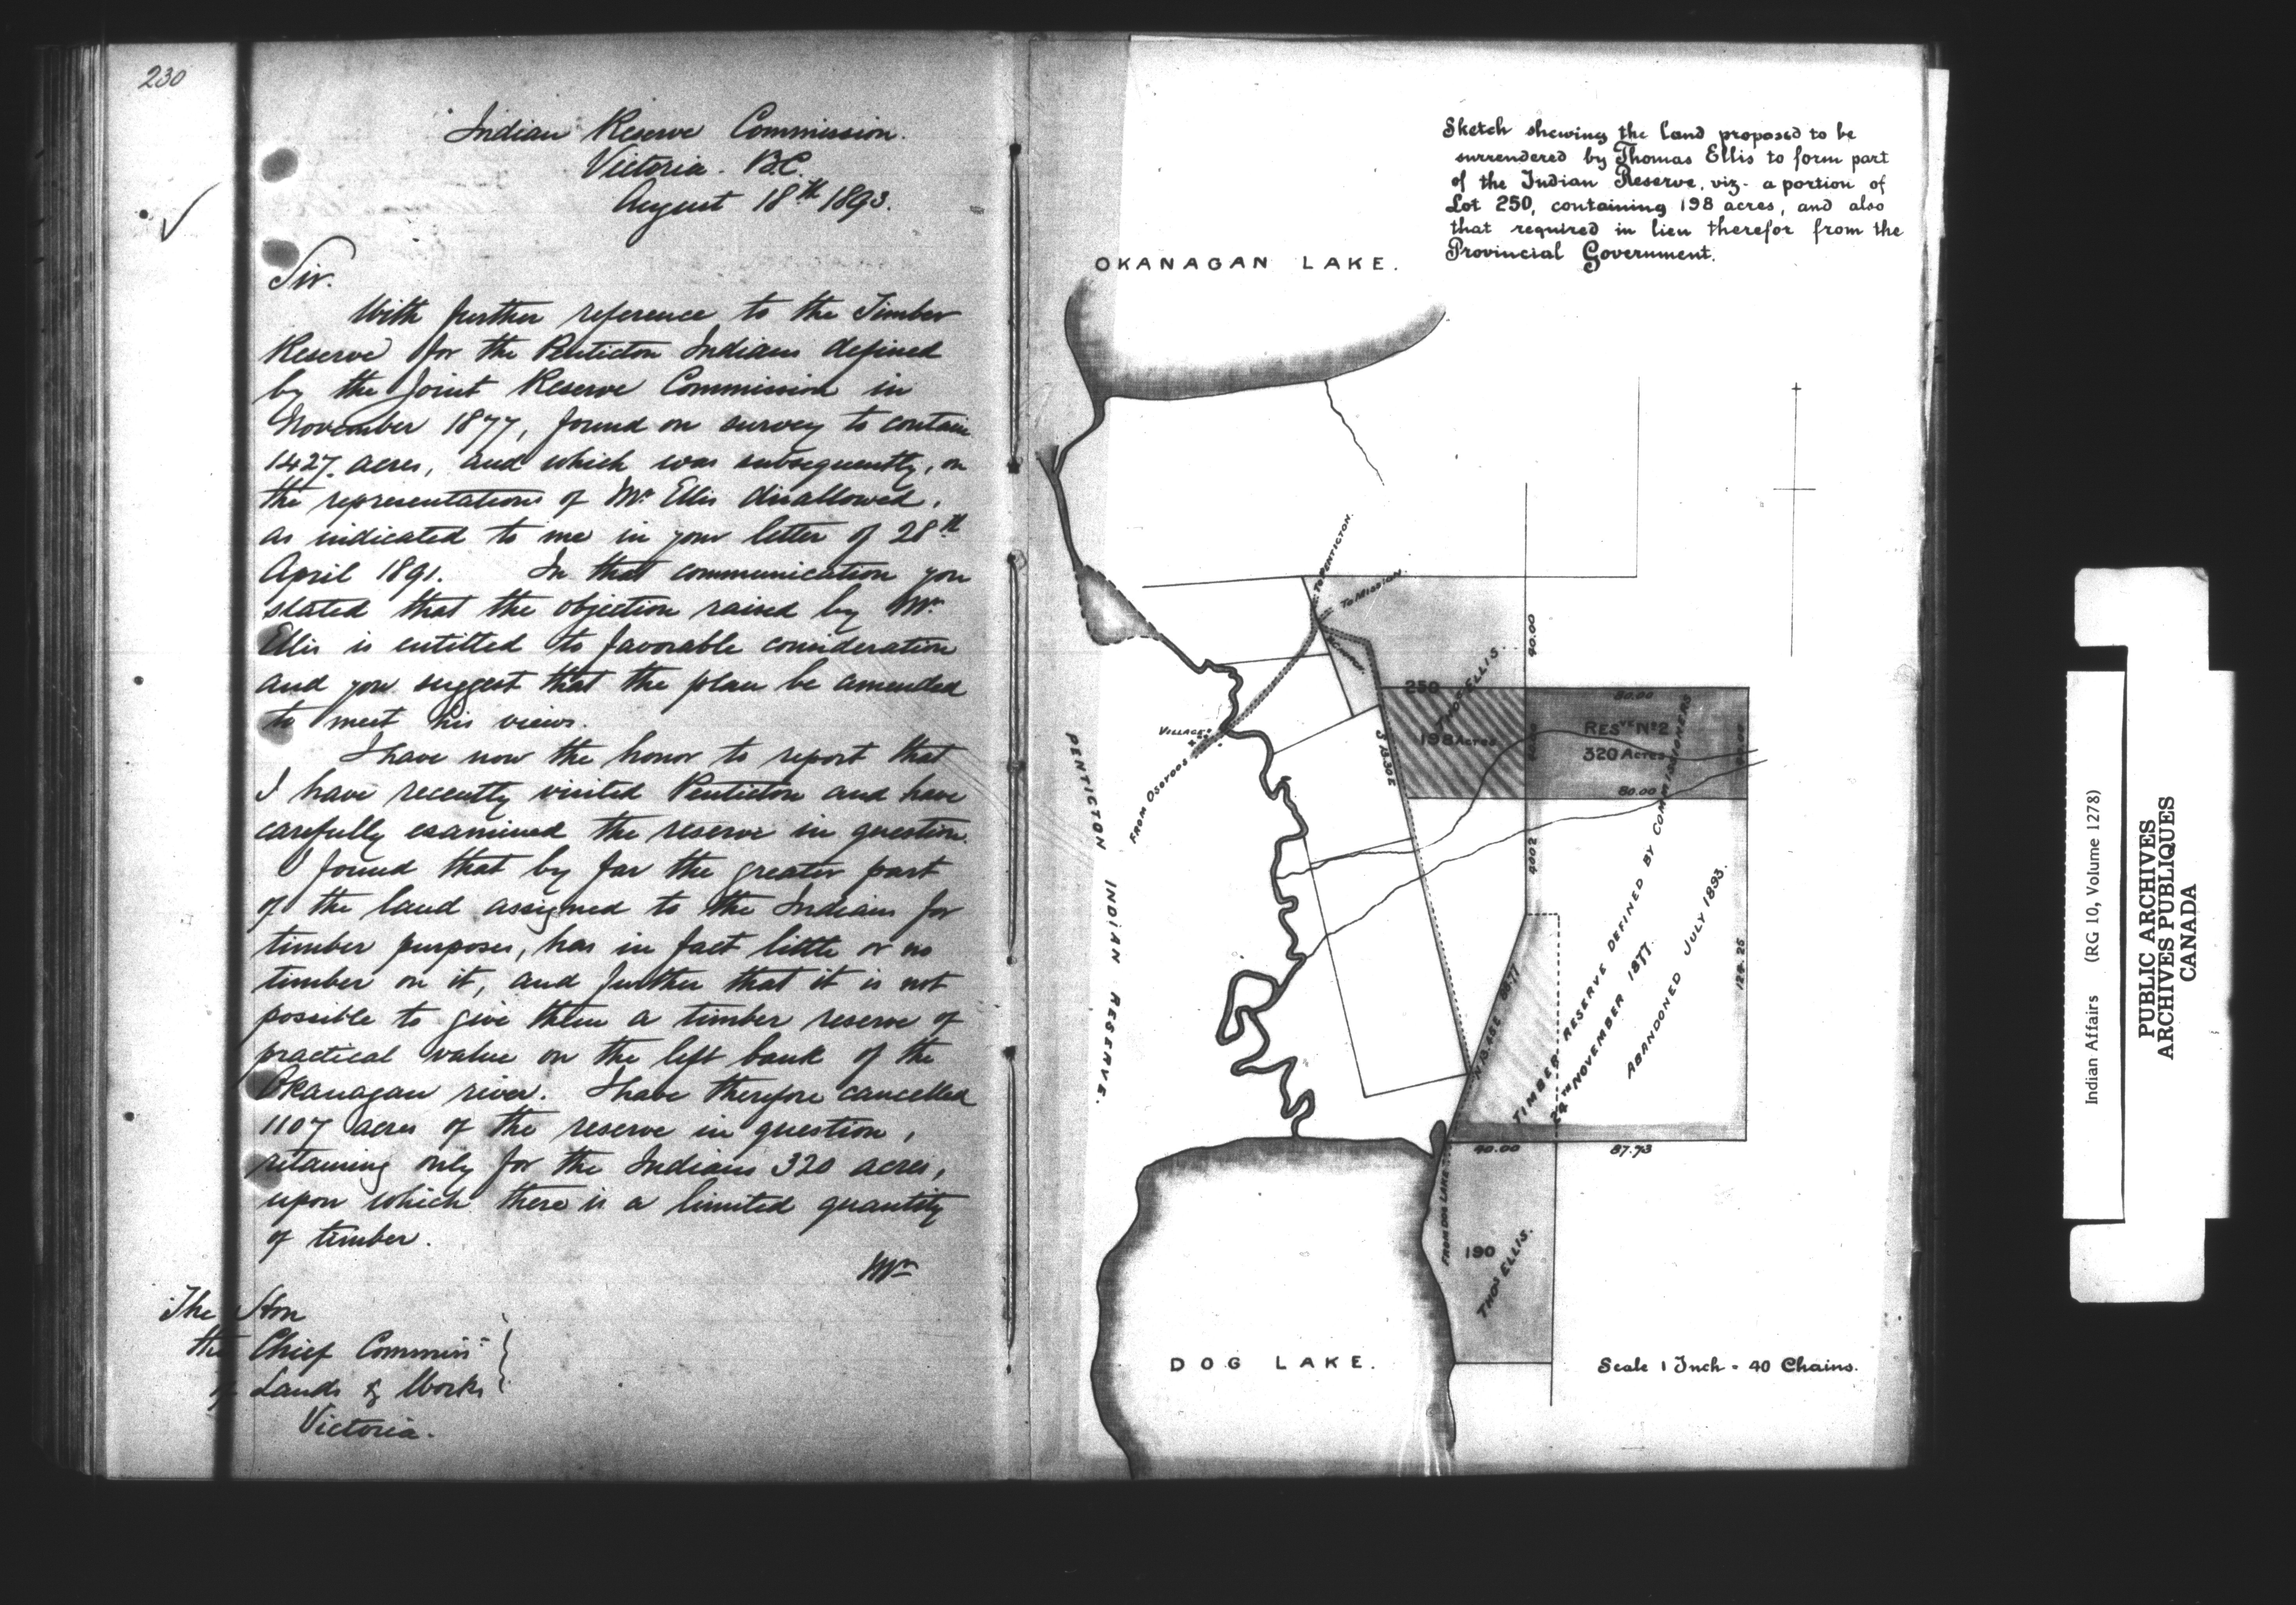 230
Indian Reserve Commission.
Victoria. B.C.
August 18th 1893.
Sir.
With further reference to the Timber
Reserve for the Penticton Indians defined
by the Joint Reserve Commission in
November 1877, found on survey to contain
1427 acres, and which was subsequently, on
the representations of Mr Ellis disallowed,
as indicated to me in your letter of 28th
April 1891. In that communication you
stated that the objection raised by Mr
Ellis is entitled to favorable consideration
and you suggest that the plan be amended
to meet his views.
I have now the honor to report that
I have recently visited Penticton and have
carefully examined the reserve in question.
I found that by far the greater part
of the land assigned to the Indians for
timber purposes, has in fact little or no
timber on it, and further that it is not
possible to give them a timber reserve of
practical value on the left bank of the
Okanagan river. I have therefore cancelled
1107 acres of the reserve in question,
retaining only for the Indians 320 acres,
upon which there is a limited quantity
of timber.
Mr
The Hon
the Chief Commissr
of Lands & Works
Victoria.
Sketch shewing the land proposed to be
surrendered by Thomas Ellis to form part
of the Indian Reserve, viz- a portion of
Lot 250, containing 198 acres, and also
that required in lieu therefor from the
Provincial Government.
OKANAGAN LAKE.
To PENTICTON.
To MISSION.
CHURCH
40.00
250
THOS ELLIS.
198 Acres
80.00
RESVE No 2
320 Acres
80.00
VILLAGE
FROM OSOYOOS
S 13.30 E
PENTICTON INDIAN RESERVE.
4002
TIMBER RESERVE DEFINED BY COMMISSIONERS
24TH NOVEMBER 1877.
ABANDONED JULY 1893.
124.25
40.00
87.73
FROM DOG LAKE
190
THOS ELLIS.
DOG LAKE.
Scale 1 Inch = 40 Chains.
Indian Affairs (RG 10, Volume 1278)
PUBLIC ARCHIVES
ARCHIVES PUBLIQUES
CANADA